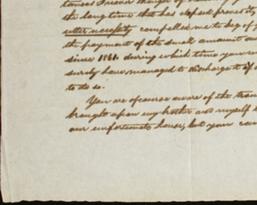 the long time that has elapsed since
utter necessity compelles me to beg of y
the payment of the small amount
since 1861 during which time you
surely have managed to discharge it if
to do so.
You are of course aware of the
brought upon my brother and myself
our unfortunate house, but your